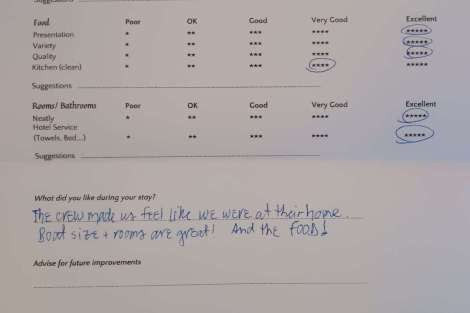 Suggestions
Food Poor OK Good Very Good Excellent
Presentation * ** *** **** *****
Variety * ** *** **** *****
Quality * ** *** **** *****
Kitchen (clean) * ** *** **** *****
Suggestions
Rooms/ Bathrooms Poor OK Good Very Good Excellent
Neatly * ** *** **** *****
Hotel Service
(Towels, Bed...) * ** *** **** *****
Suggestions
What did you like during your stay?
The crew made us feel like we were at their home.
Boat size + rooms are great! And the FOOD!
Advise for future improvements